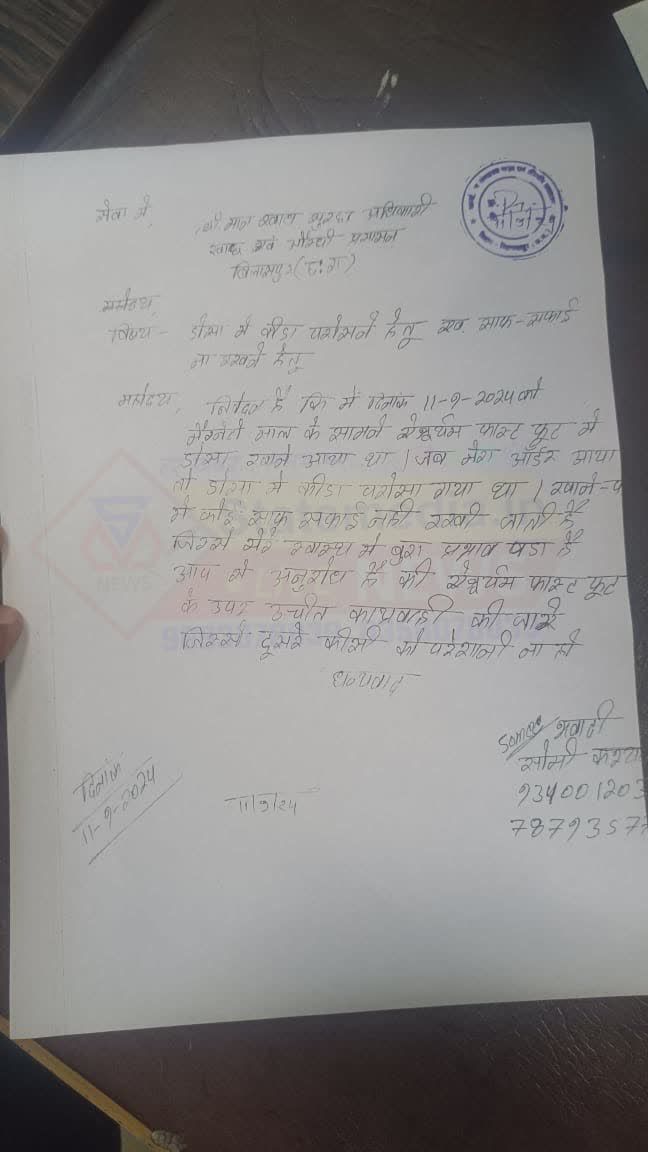 सेवा में,
श्री मान खाद्य सुरक्षा अधिकारी
खाद्य एवं औषधी प्रशासन
बिलासपुर (छ: ग)
महोदय,
विषय - डोसा मे कीडा परोसने हेतू एवं साफ-सफाई
ना रखने हेतू
महोदय, निवेदन है कि में दिनांक 11-9-2024 को
मैग्नेटो माल के सामने ऐश्वर्यम फास्ट फूट मे
डोसा खाने आया था । जब मेरा ऑर्डर आया
तो डोसा मे कीडा परोसा गया था । खाने-प
मे कोई साफ सफाई नही रखी जाती है
जिससे मेरे स्वास्थ मे बुरा प्रभाव पडा है
आप से अनुरोध है की ऐश्वर्यम फास्ट फूट
के उपर उचीत कार्यवाही की जाये
जिससे दूसरे कीसी को परेशानी ना हो
धन्यवाद
प्रार्थी
सोमी कश्य
934001203
7879357
दिनांक
11-9-2024
11/9/24
NEWS